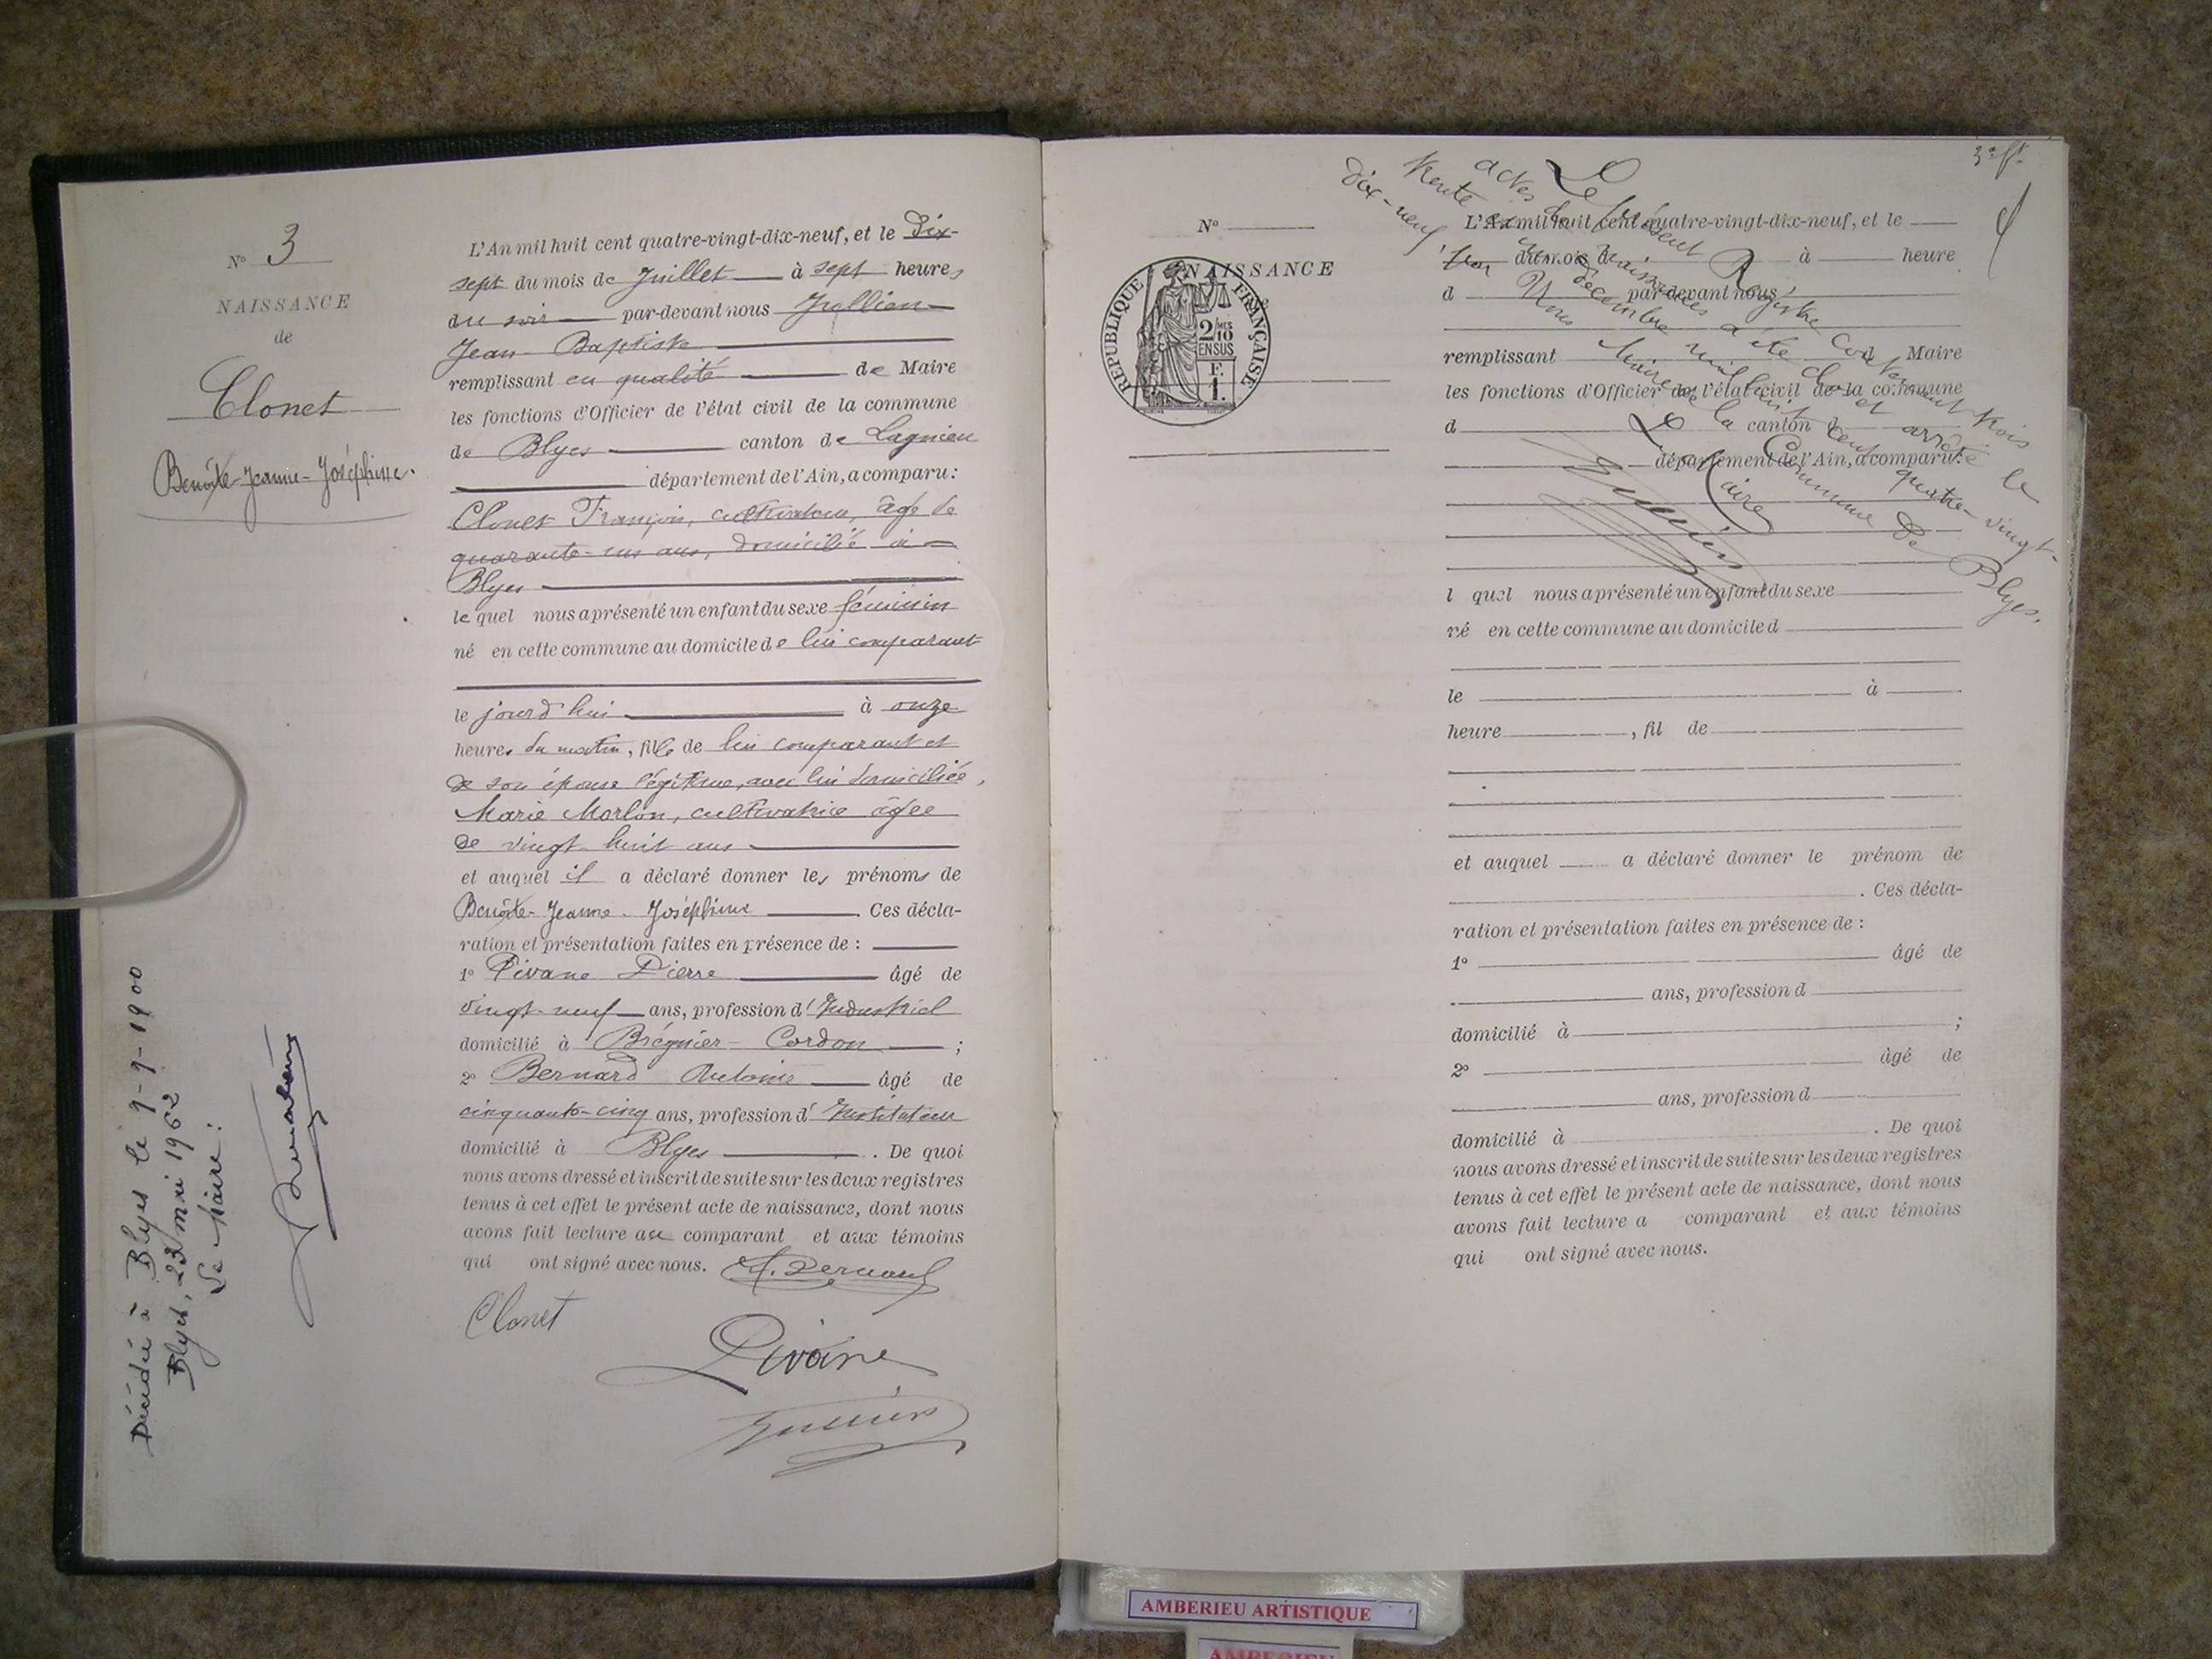 N° 3
NAISSANCE
de
Clonet
Benoîte-Jeanne-Joséphine.
L'An mil huit cent quatre-vingt-dix-neuf, et le Dix-
sept du mois de Juillet à sept heures
du soir par-devant nous
Jean-Baptiste
remplissant en qualité de Maire
les fonctions d'Officier de l'état civil de la commune
de Blyes canton de Lagnieu
département de l'Ain, a comparu :
Clonet François, cultivateur, âgé de
quarante-un ans, domicilié à
Blyes
lequel nous a présenté un enfant du sexe féminin
né en cette commune au domicile de lui comparant
le jourd'hui à onze
heures du matin, fille de lui comparant et
de son épouse légitime, avec lui domiciliée,
Marie Morlon, cultivatrice âgée
de vingt-huit ans
et auquel il a déclaré donner les prénoms de
Benoîte-Jeanne-Joséphine. Ces décla-
ration et présentation faites en présence de :
1° Pivane Pierre âgé de
vingt-neuf ans, profession d'Industriel
domicilié à Brégnier-Cordon ;
2° Bernard Antoine âgé de
cinquante-cinq ans, profession d'Instituteur
domicilié à Blyes. De quoi
nous avons dressé et inscrit de suite sur les deux registres
tenus à cet effet le présent acte de naissance, dont nous
avons fait lecture au comparant et aux témoins
qui ont signé avec nous. A. Bernard
Clonet
Pivane
Décédée à Blyes le 9-9-1900
Blyes, 22 mai 1962
Le Maire :
3e ft
N°
NAISSANCE
RÉPUBLIQUE FRANÇAISE
2/10 MES
EN SUS
F.
1.
Le présent Registre contenant trois
actes de naissances a été clos et arrêté le
trente un décembre mil huit cent quatre-vingt-
dix-neuf, par Nous Maire de la Commune de Blyes.
Le Maire
L'An mil huit cent quatre-vingt-dix-neuf, et le
du mois d à heure
d par-devant nous
remplissant d Maire
les fonctions d'Officier de l'état civil de la commune
d canton d
département de l'Ain, a comparu :
l quel nous a présenté un enfant du sexe
né en cette commune au domicile d
le à
heure , fil de
et auquel a déclaré donner le prénom de
. Ces décla-
ration et présentation faites en présence de :
1° âgé de
ans, profession d
domicilié à ;
2° âgé de
ans, profession d
domicilié à . De quoi
nous avons dressé et inscrit de suite sur les deux registres
tenus à cet effet le présent acte de naissance, dont nous
avons fait lecture a comparant et aux témoins
qui ont signé avec nous.
AMBERIEU ARTISTIQUE
AMBERIEU